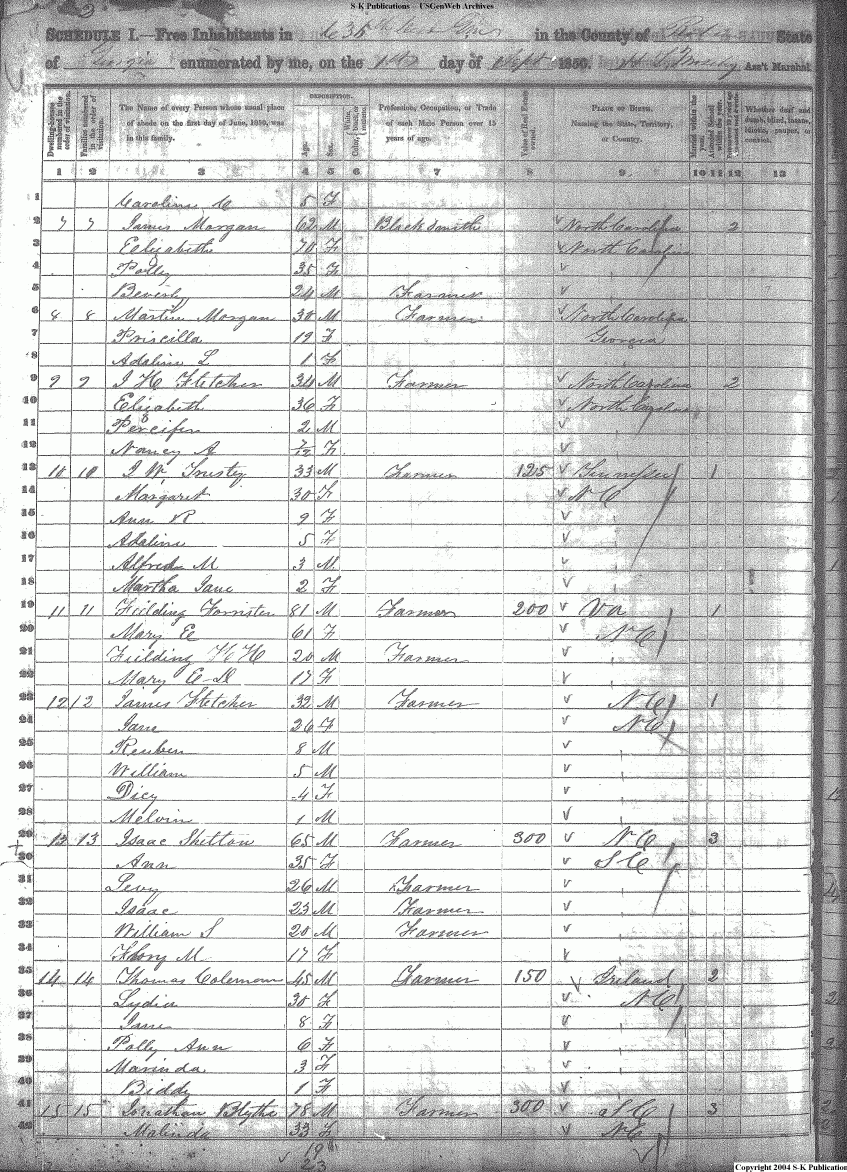 S-K Publications - USGenWeb Archives
SCHEDULE I.—Free Inhabitants in in the County of State
of Georgia enumerated by me, on the day of Sept 1850. Ass't Marshal
Dwelling-houses numbered in the order of visitation.
Families numbered in the order of visitation.
The Name of every Person whose usual place of abode on the first day of June, 1850, was in this family.
DESCRIPTION.
Age.
Sex.
Profession, Occupation, or Trade of each Male Person over 15 years of age.
Value of Real Estate owned.
PLACE OF BIRTH. Naming the State, Territory, or Country.
Married within the year.
Attended School within the year.
Whether deaf and dumb, blind, insane, idiotic, pauper, or convict.
1 2 3 4 5 6 7 8 9 10 11 12 13
1 Caroline C 5 F
2 7 7 James Morgan 62 M Black Smith North Carolina 2
3 Elizabeth 70 F North Carolina
4 Polly 35 F
5 Beverly 24 M Farmer
6 8 8 Martin Morgan 30 M Farmer North Carolina
7 Priscilla 19 F Georgia
8 Adaline L 1 F
9 9 9 J H Fletcher 34 M Farmer North Carolina 2
10 Elizabeth 36 F North Carolina
11 Percifer 2 M
12 Nancy A 7/12 F
13 10 10 J W Trusty 33 M Farmer 125 Tennessee 1
14 Margaret 30 F N C
15 Ann R 9 F
16 Adaline 5 F
17 Alfred M 3 M
18 Martha Jane 2 F
19 11 11 Fielding Forrister 81 M Farmer 200 Va 1
20 Mary E 61 F N C
21 Fielding H 20 M Farmer
22 Mary E D 17 F
23 12 12 James Fletcher 32 M Farmer N C 1
24 Jane 26 F N C
25 Reuben 8 M
26 William 5 M
27 Dicy 4 F
28 Melvin 1 M
29 13 13 Isaac Shelton 65 M Farmer 300 N C 3
30 Ann 35 F S C
31 Levy 26 M Farmer
32 Isaac 23 M Farmer
33 William S 20 M Farmer
34 M 17 F
35 14 14 Thomas Coleman 45 M Farmer 150 Ireland 2
36 Lydia 30 F N C
37 Jane 8 F
38 Polly Ann 6 F
39 Marinda 3 F
40 Biddy 1 F
41 15 15 Jonathan Blythe 78 M Farmer 300 S C 3
42 Malinda 33 F N C
19
23
Copyright 2004 S-K Publications